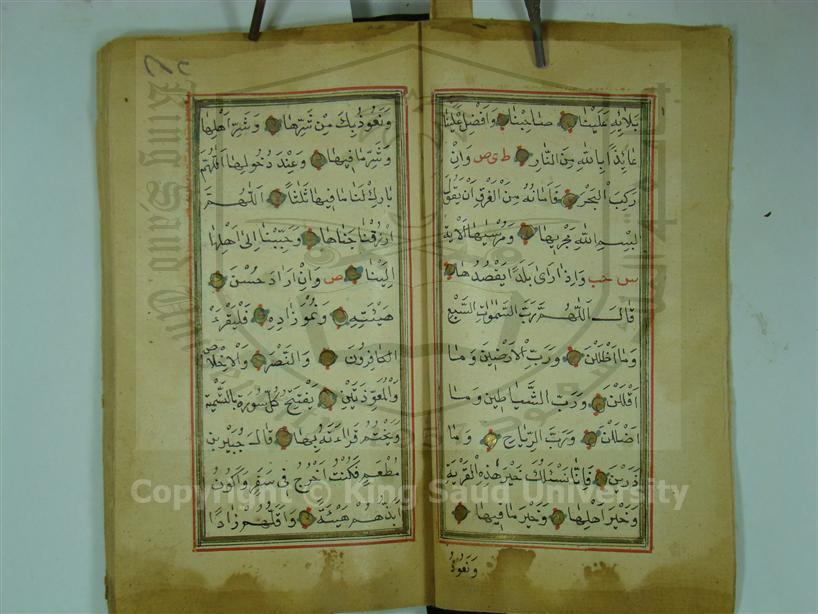 بَلَائِهِ عَلَيْنَا صَاحِبْنَا وَأَفْضِلْ عَلَيْنَا
عَائِذًا بِاللهِ مِنَ النَّارِ ط ى ص وَاِنْ
رَكِبَ الْبَحْرَ فَاَمَانُهُ مِنَ الْغَرَقِ اَنْ يَقُولَ
بِسْمِ اللهِ مَجْرٰيهَا وَمُرْسٰيهَا الْاٰيَةَ
س حب وَاِذَا رَاٰى بَلَدًا يَقْصُدُهَا
قَالَ اَللّٰهُمَّ رَبَّ السَّمٰوَاتِ السَّبْعِ
وَمَا اَظْلَلْنَ وَرَبَّ الْاَرَضِينَ وَمَا
اَقْلَلْنَ وَرَبَّ الشَّيَاطِينِ وَمَا
اَضْلَلْنَ وَرَبَّ الرِّيَاحِ وَمَا
ذَرَيْنَ فَاِنَّا نَسْئَلُكَ خَيْرَ هٰذِهِ الْقَرْيَةِ
وَخَيْرَ اَهْلِهَا وَخَيْرَ مَا فِيهَا
وَنَعُوذُ
وَنَعُوذُ بِكَ مِنْ شَرِّهَا وَشَرِّ اَهْلِهَا
وَشَرِّ مَا فِيهَا وَعِنْدَ دُخُولِهَا اَللّٰهُمَّ
بَارِكْ لَنَا مَا فِيهَا ثَلٰثًا اَللّٰهُمَّ
ارْزُقْنَا جَنَاهَا وَحَبِّبْنَا اِلٰى اَهْلِهَا
اِلَيْنَا ص وَاِنْ اَرَادَ حُسْنَ
هَيْئَتِهِ وَنُمُوَّ زَادِهِ فَلْيَقْرَءْ
الْكَافِرُونَ وَالنَّصْرَ وَالْاِخْلَاصَ
وَالْمُعَوِّذَتَيْنِ يَفْتَتِحُ كُلَّ سُورَةٍ بِالتَّسْمِيَةِ
وَيَخْتِمُ قِرَاءَتَهُ بِهَا قَالَ جُبَيْرُ بْنُ
مُطْعِمٍ فَكُنْتُ اَخْرُجُ فِى سَفَرٍ وَاَكُونُ
اَبَذَّهُمْ هَيْئَةً وَاَقَلَّهُمْ زَادًا
King Saud University
Copyright © King Saud University